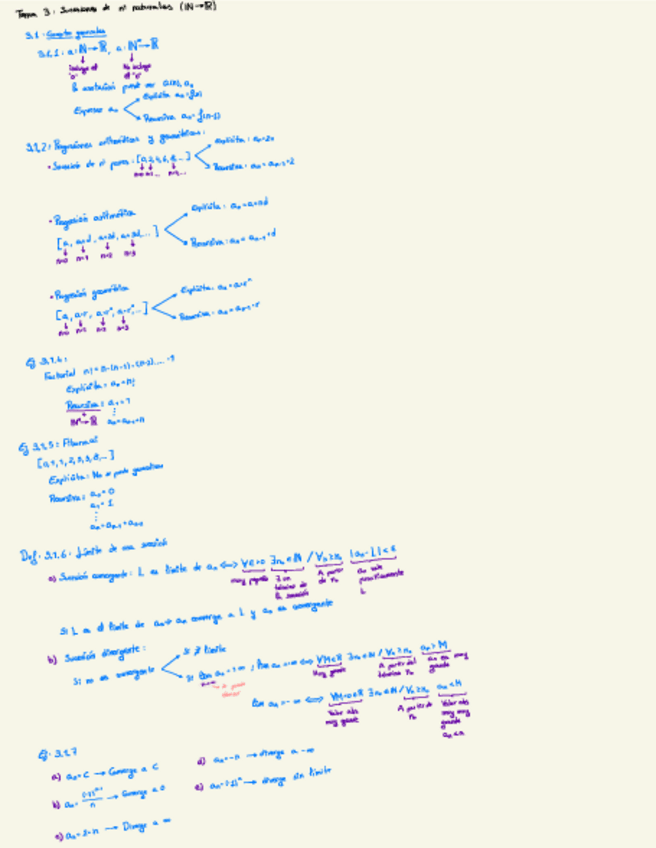 Tema 3: Sucesiones de nº naturales (ℕ→ℝ)
3.1: Concepto generales
3.1.1: a: ℕ→ℝ, a: ℕ*→ℝ
Incluye el "0"
No incluye el "0"
La notación puede ser a(n), aₙ
Expresar aₙ
Explícita aₙ = f(n)
Recursiva aₙ = f(n-1)
3.1.2: Progresiones aritméticas y geométricas:
• Sucesión de nº pares: [0,2,4,6,8,...]
Explícita: aₙ = 2n
Recursiva: aₙ = aₙ₋₁ + 2
• Progresión aritmética
[a, a+d, a+2d, a+3d,...]
n=0 n=1 n=2 n=3
Explícita: aₙ = a+nd
Recursiva: aₙ = aₙ₋₁+d
• Progresión geométrica
[a, a·r, a·r², a·r³,...]
n=0 n=1 n=2 n=3
Explícita: aₙ = a·rⁿ
Recursiva: aₙ = aₙ₋₁·r
Ej 3.1.4:
Factorial n! = n·(n-1)·(n-2)·...·1
Explícita: aₙ = n!
Recursiva: a₁ = 1
ℕ*→ℝ
aₙ = aₙ₋₁·n
Ej 3.1.5: Fibonacci
[0,1,1,2,3,5,8,...]
Explícita: No se puede
Recursiva: a₀ = 0
a₁ = 1
⋮
Def. 3.1.6: Límite de una sucesión
a) Sucesión convergente: L es límite de aₙ ⟺ ∀ε>0 ∃n₀∈ℕ / ∀n≥n₀ |aₙ-L|<ε
muy pequeño
A partir de n₀
L
Si L es el límite de aₙ → aₙ converge a L y aₙ es convergente
b) Sucesión divergente:
Si no es convergente
Si ∄ límite
Si lim aₙ = ±∞; lim aₙ = +∞ ⟺ ∀M∈ℝ ∃n₀∈ℕ / ∀n≥n₀ aₙ>M
Muy grande
A partir del término n₀
aₙ es muy grande
lim aₙ = -∞ ⟺
∃n₀∈ℕ / ∀n≥n₀
Valor abs muy grande
A partir de n₀
Valor abs muy muy grande
Ej. 3.1.7
a) aₙ = C → Converge a C
d) aₙ = -n → diverge a -∞
→ Converge a 0
e) aₙ = (-1)ⁿ → diverge sin límite
→ Diverge a ∞